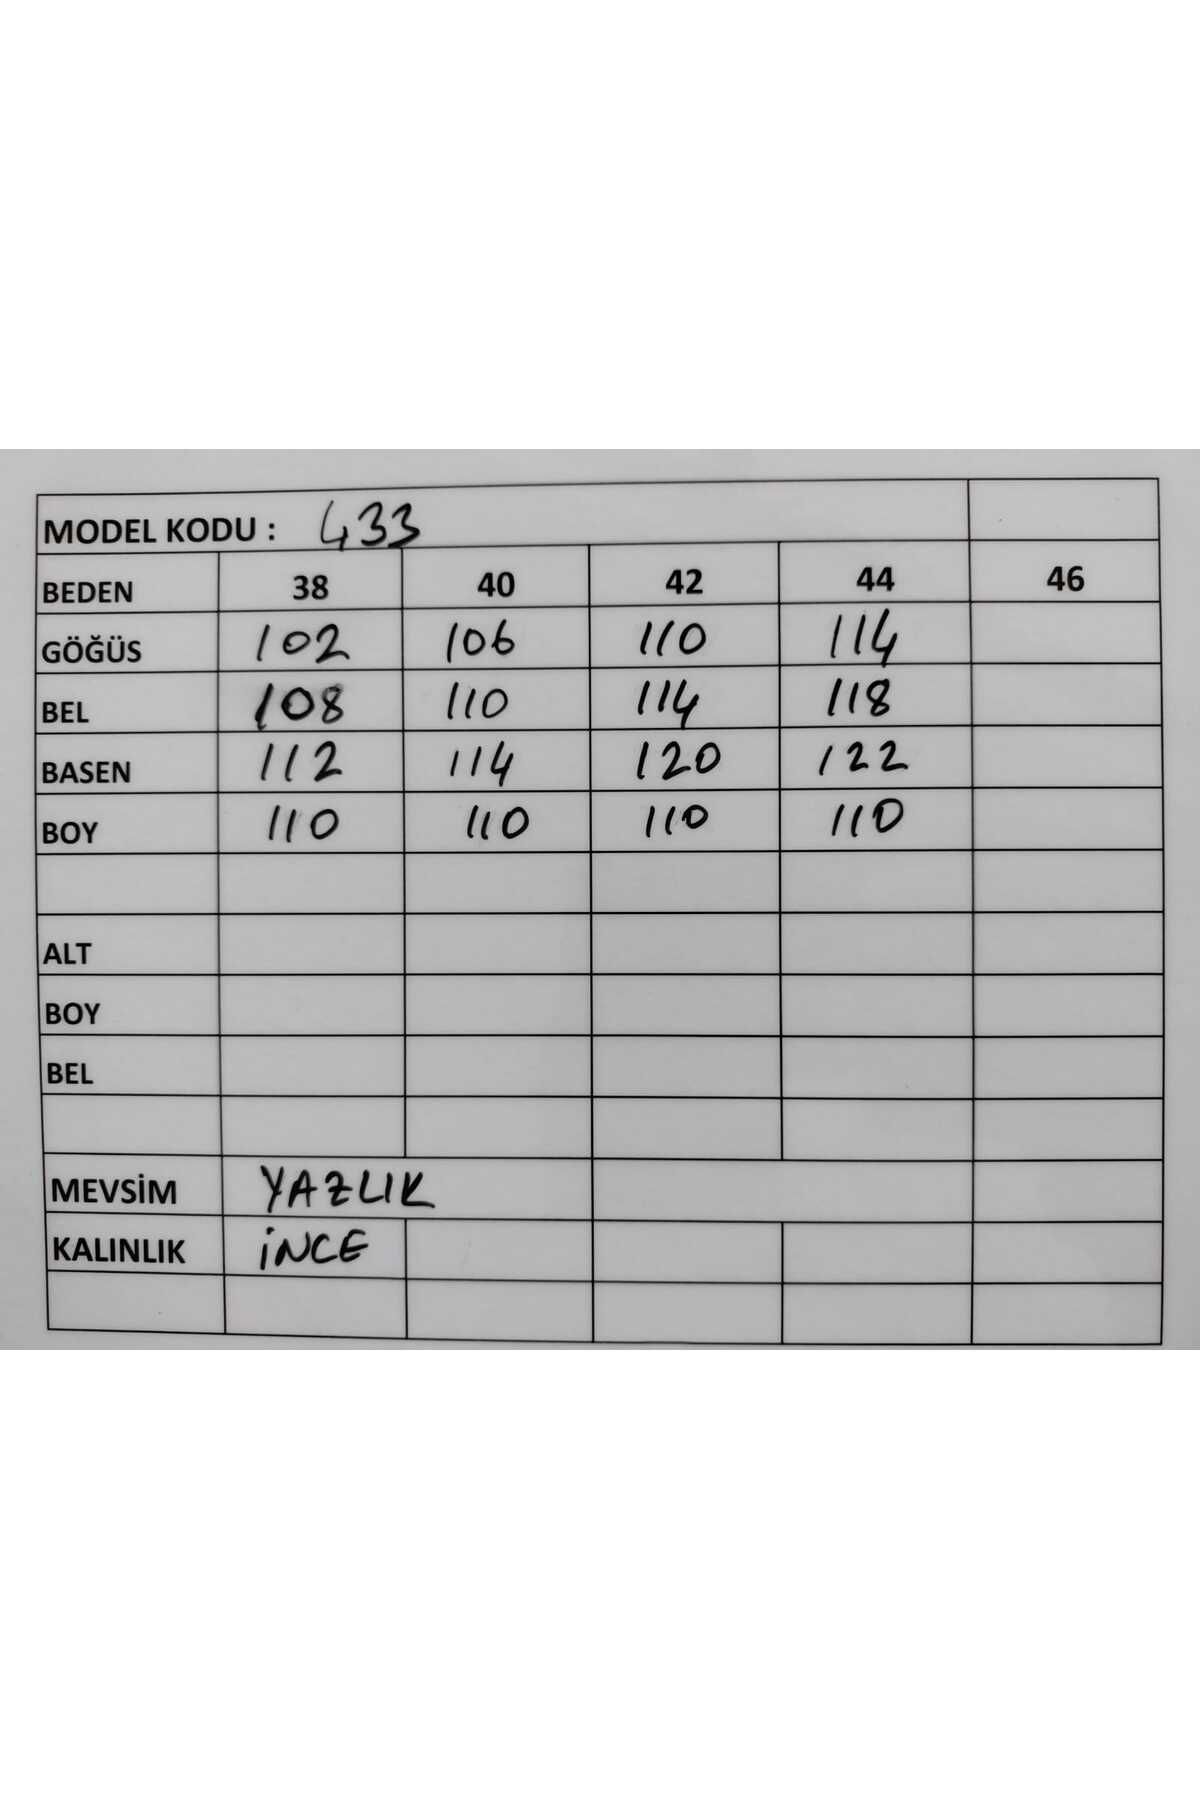 MODEL KODU : 433
BEDEN 38 40 42 44 46
GÖĞÜS 102 106 110 114
BEL 108 110 114 118
BASEN 112 114 120 122
BOY 110 110 110 110
ALT
BOY
BEL
MEVSİM YAZLIK
KALINLIK İNCE